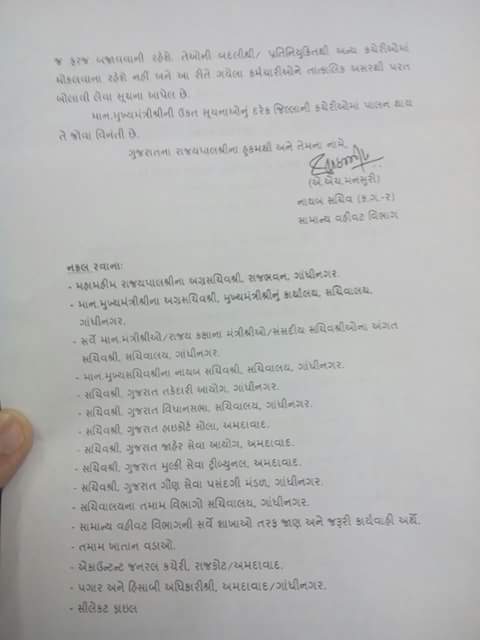 જ ફરજ બજાવવાની રહેશે. તેઓની બદલીથી/ પ્રતિનિયુક્તિથી અન્ય કચેરીઓમાં
મોકલવાના રહેશે નહીં અને આ રીતે ગયેલા કર્મચારીઓને તાત્કાલિક અસરથી પરત
બોલાવી લેવા સૂચના આપેલ છે.
માન.મુખ્યમંત્રીશ્રીની ઉક્ત સૂચનાઓનું દરેક જિલ્લાની કચેરીઓમાં પાલન થાય
તે જોવા વિનંતી છે.
ગુજરાતના રાજ્યપાલશ્રીના હુકમથી અને તેમના નામે,
(એ.એચ.મનસુરી)
નાયબ સચિવ (ક.ગ.-૨)
સામાન્ય વહીવટ વિભાગ
નકલ રવાનાઃ
- મહામહીમ રાજ્યપાલશ્રીના અગ્રસચિવશ્રી, રાજભવન, ગાંધીનગર.
- માન.મુખ્યમંત્રીશ્રીના અગ્રસચિવશ્રી, મુખ્યમંત્રીશ્રીનું કાર્યાલય, સચિવાલય,
ગાંધીનગર.
- સર્વે માન.મંત્રીશ્રીઓ/રાજ્ય કક્ષાના મંત્રીશ્રીઓ/સંસદીય સચિવશ્રીઓના અંગત
સચિવશ્રી, સચિવાલય, ગાંધીનગર.
- માન.મુખ્યસચિવશ્રીના નાયબ સચિવશ્રી, સચિવાલય, ગાંધીનગર.
- સચિવશ્રી, ગુજરાત તકેદારી આયોગ, ગાંધીનગર.
- સચિવશ્રી, ગુજરાત વિધાનસભા, સચિવાલય, ગાંધીનગર.
- સચિવશ્રી, ગુજરાત હાઇકોર્ટ સોલા, અમદાવાદ.
- સચિવશ્રી, ગુજરાત જાહેર સેવા આયોગ, અમદાવાદ.
- સચિવશ્રી, ગુજરાત મુલ્કી સેવા ટ્રીબ્યુનલ, અમદાવાદ.
- સચિવશ્રી, ગુજરાત ગૌણ સેવા પસંદગી મંડળ, ગાંધીનગર.
- સચિવાલયના તમામ વિભાગો સચિવાલય, ગાંધીનગર.
- સામાન્ય વહીવટ વિભાગની સર્વે શાખાઓ તરફ જાણ અને જરૂરી કાર્યવાહી અર્થે.
- તમામ ખાતાના વડાઓ.
- એકાઉન્ટન્ટ જનરલ કચેરી, રાજકોટ/અમદાવાદ.
- પગાર અને હિસાબી અધિકારીશ્રી, અમદાવાદ/ગાંધીનગર.
- સીલેક્ટ ફાઇલ